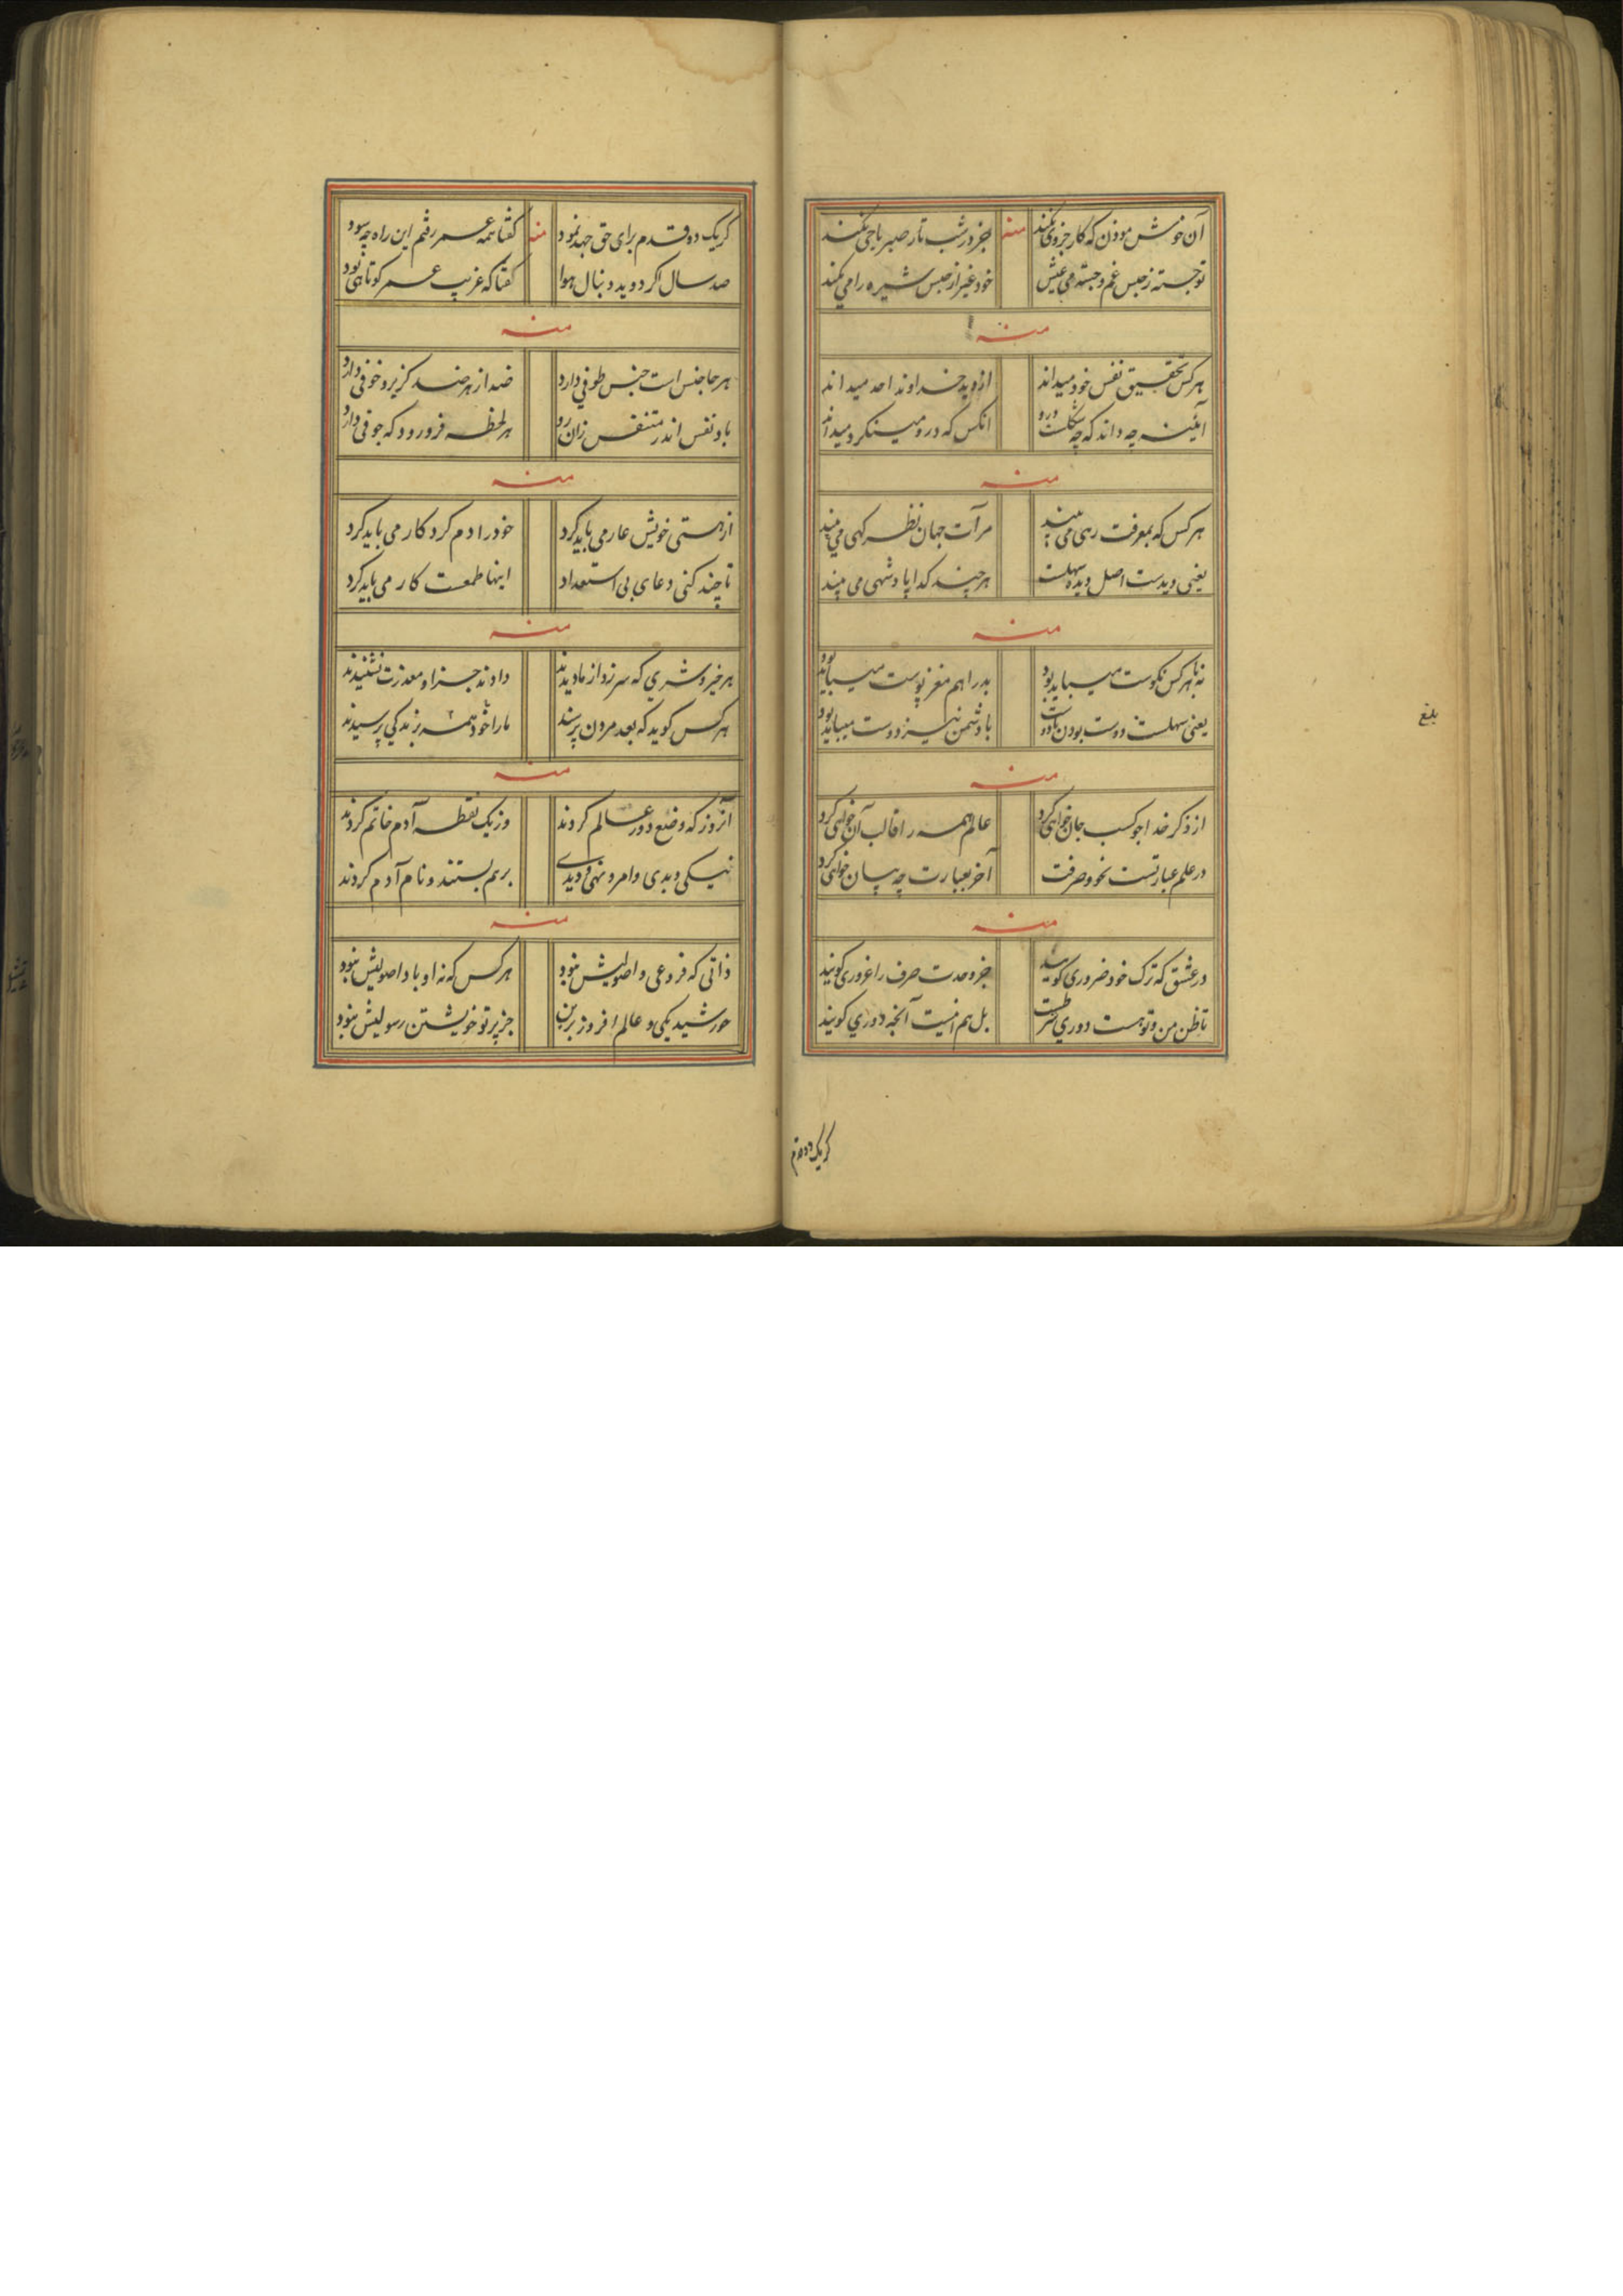 آن خوش موذن که کار جزوی نکند منه جز در شب تار صبر یاجی نکند
تو جسته ز حبس غم و جسته می عیش خود غیر از حبس شیره را می نکند
منه
هر کس بتحقیق نفس خود میداند از دید خداوند احد میداند
آئینه چه داند که چه شکلست درو انکس که درو مینکرد میداند
منه
هر کس که بمعرفت رهی می بیند مرآت جهان نظر کهی می بیند
یعنی دیدست اصل دیده سهلست هر چند کدا پادشهی می بیند
منه
نه با هر کس نکوست میباید بود بد را هم مغز پوست میباید بود
یعنی سهلست دوست بودن با دوست با دشمن نیز دوست میباید بود
منه
از ذکر خدا جو کسب جان خواهی کرد عالم همه را قالب آن خواهی کرد
در علم عبارتست نحو و صرفت آخر بعبارت چه بیان خواهی کرد
منه
در عشق که ترک خود ضروری کویند جز وحدت صرف را غروری کویند
تا ظن من و تو هست دوری شرطست بل هم اینست آنچه دوری کویند
بلغ
کر یک دو قدم
کر یک دو قدم برای حق جهد نمود منه کفتا همه عمر رفتم این راه چه سود
صد سال اکر دوید دنبال هوا کفتا که غریب عمر کوتاهی بود
منه
هر جا جنس است جنس طوفی دارد ضد از هر ضد کریز و خوفی دارد
باد نفس اندر متنفس زان رو هر لحظه فرو رود که جوفی دارد
منه
از هستی خویش عار می باید کرد خود را دم کرد کار می باید کرد
تا چند کنی دعای بی استعداد اینها طمعست کار می باید کرد
منه
هر خیر و شری که سر زد از ما دیدند دادند جزا و معذرت نشنیدند
هر کس کوید که بعد مردن پرسند ما را خود همه بزندکی پرسیدند
منه
آنروز که وضع دور عالم کردند وز یک نقطه آدم خاتم کردند
نیکی و بدی و امر و نهی و دیدی بر هم بستند و نام آدم کردند
منه
ذاتی که فروعی و اصولیش نبود هر کس که نه او با د اصولیش نبود
خورشید یکی و عالم افروز برین جز پرتو خویشتن رسولیش نبود